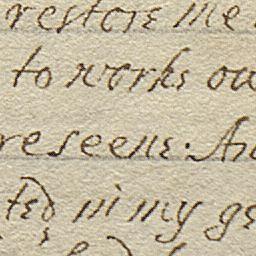 restore me
to works ou
reseene. An
ted in my ge